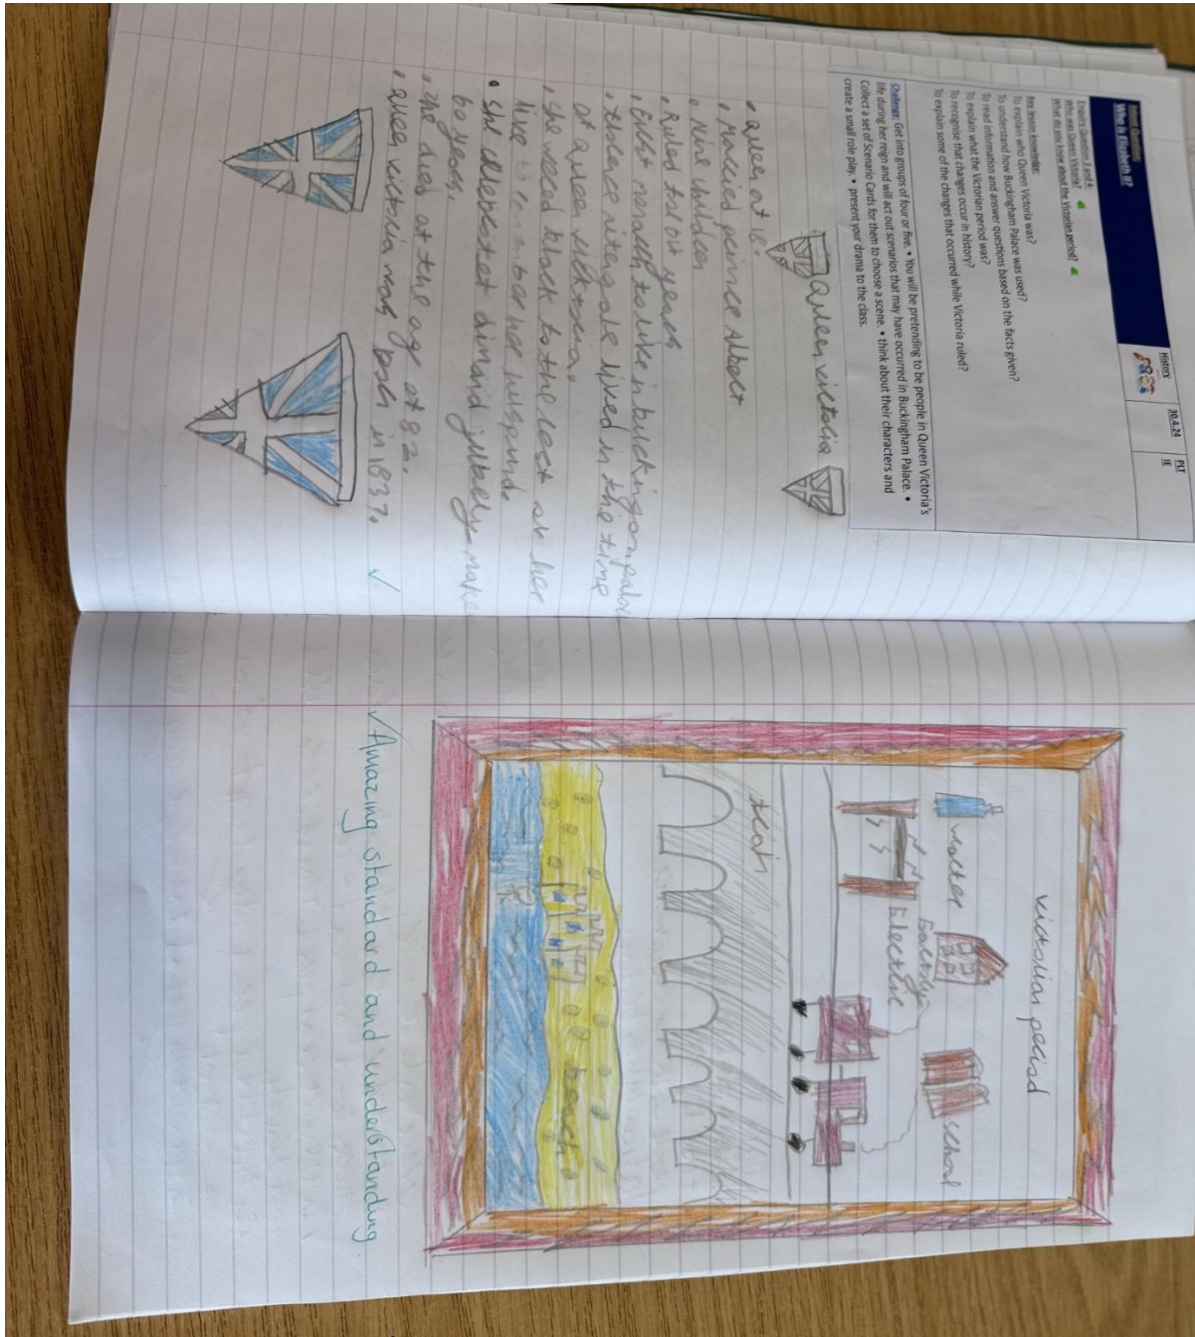 History
30.4.24
PLT
IE
Mental Question:
Who is Elizabeth II?
Enquiry Question 3 and 4:
Who was Queen Victoria?
What do you know about the Victorian period?
Key lesson knowledge:
To explain who Queen Victoria was?
To understand how Buckingham Palace was used?
To read information and answer questions based on the facts given?
To explain what the Victorian period was?
To recognise that changes occur in history?
To explain some of the changes that occurred while Victoria ruled?
Challenge: Get into groups of four or five. • You will be pretending to be people in Queen Victoria's
life during her reign and will act out scenarios that may have occurred in Buckingham Palace. •
Collect a set of Scenario Cards for them to choose a scene. • think about their characters and
create a small role play. • present your drama to the class.
Queen victoria
• Queen at 18
• Married prince Albert
• Nine children
• Ruled for 64 years
• First to live in
• lived in the time
of queen
• she weed black to the rest ov her
live
• She dimand
60 years.
• She dies at the age of 82.
• Queen victoria was born in 1837.
victorian period
watter
Factory
school
Electric
train
beach
Amazing standard and understanding